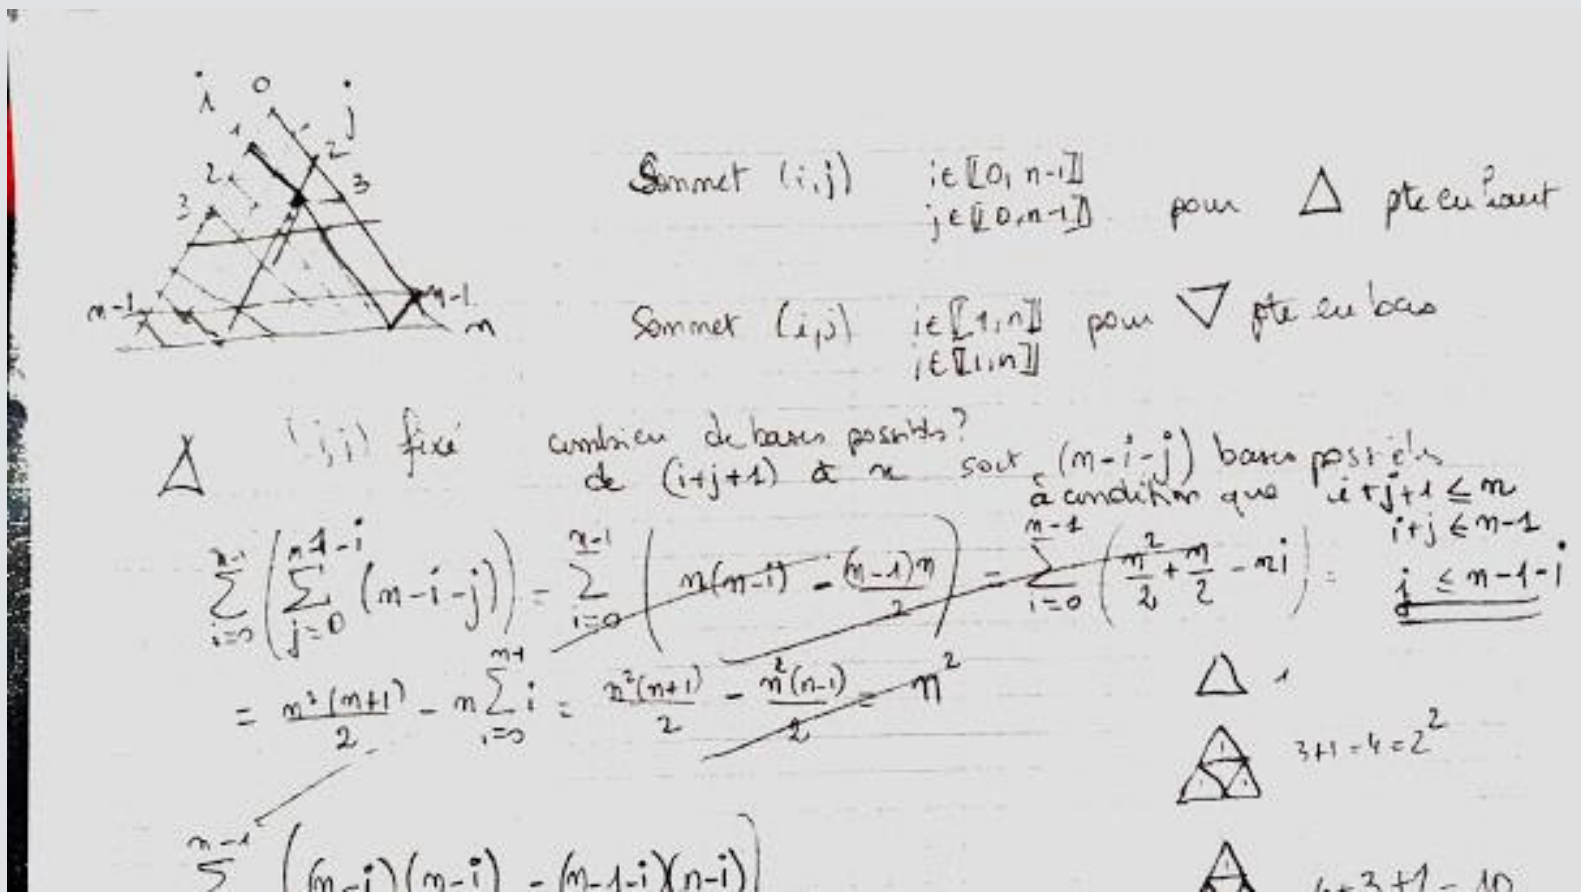 i 0 j
1
2 2
3 3
n-1 n-1
n
Sommet (i,j) i∈⟦0, n-1⟧
j∈⟦0, n-1⟧ pour △ pte en haut
Sommet (i,j) i∈⟦1, n⟧ pour ▽ pte en bas
i∈⟦1, n⟧
△ (i,j) fixé combien de bases possibles?
de (i+j+1) à n soit (n-i-j) bases possibles
à condition que i+j+1 ≤ n
i+j ≤ n-1
j ≤ n-1-i
∑_{i=0}^{n-1} (∑_{j=0}^{n-1-i} (n-i-j)) = ∑_{i=0}^{n-1} (n(n-i) - (n-1)n/2) = ∑_{i=0}^{n-1} (n²/2 + n/2 - ni) =
= n²(n+1)/2 - n ∑_{i=0}^{n-1} i = n²(n+1)/2 - n²(n-1)/2 = n²
△ 1
3+1=4=2²
∑^{n-1} ((n-i)(n-i) - (n-1-i)(n-i)
6+3+1=10